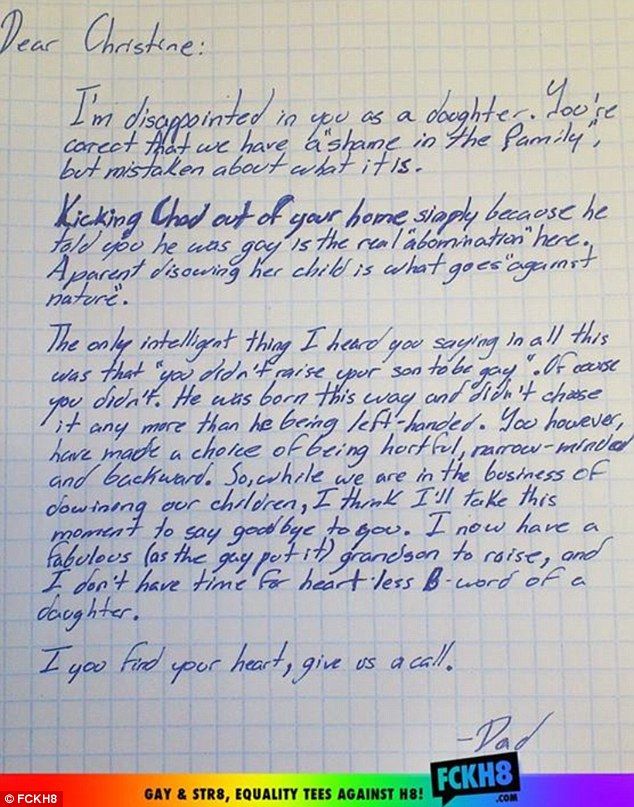 Dear Christine:
I'm disappointed in you as a daughter. You're
corect that we have a "shame in the family",
but mistaken about what it is.
Kicking Chad out of your home simply because he
told you he was gay is the real "abomination" here.
A parent disowing her child is what goes "against
nature".
The only intelligent thing I heard you saying in all this
was that "you didn't raise your son to be gay". Of couse
you didn't. He was born this way and didn't choose
it any more than he being left-handed. You however,
have made a choice of being hortful, narrow-minded
and backward. So, while we are in the business of
dowining our children, I think I'll take this
moment to say goodbye to you. I now have a
fabulous (as the gay put it) grandson to raise, and
I don't have time for heart-less B-word of a
daughter.
I you find your heart, give us a call.
-Dad
GAY & STR8, EQUALITY TEES AGAINST H8! FCKH8
.COM
© FCKH8